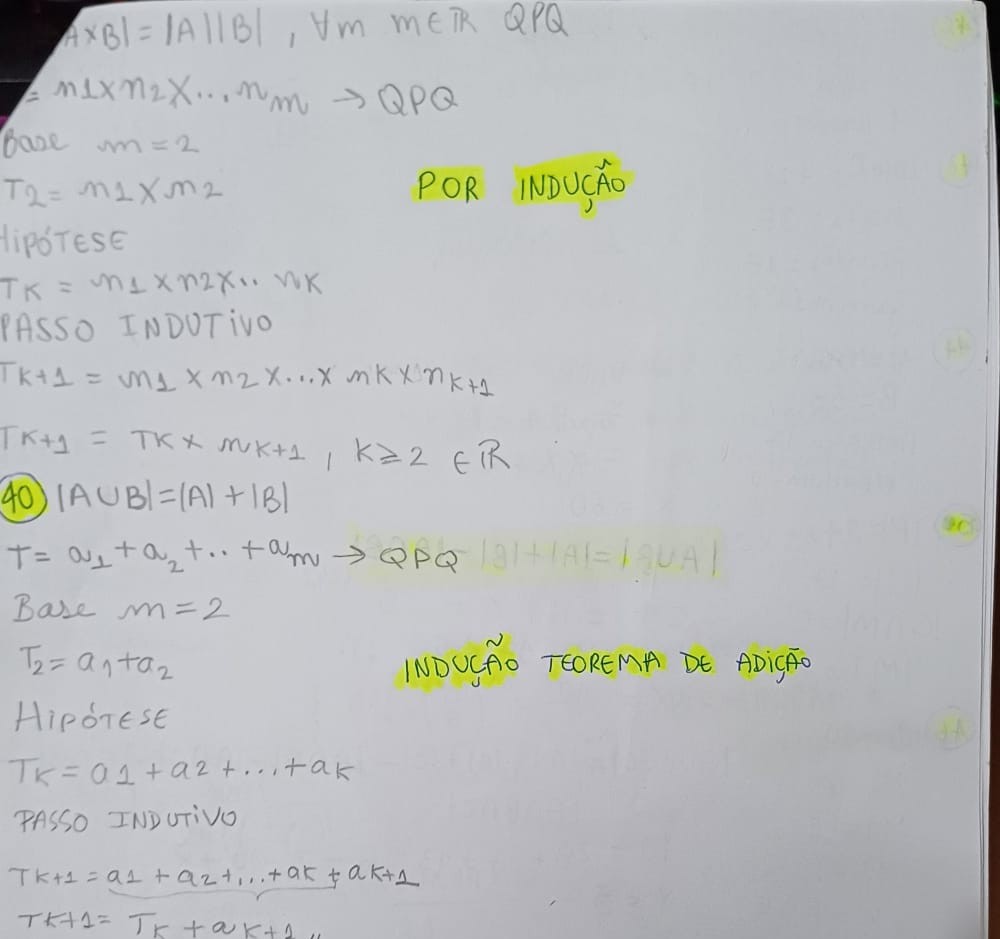 A×B| = |A||B| , ∀m m∈ℝ QPQ
= n1×n2×...nm → QPQ
Base m=2
T2 = n1×n2
POR INDUÇÃO
HIPÓTESE
TK = n1×n2×.. nK
PASSO INDUTIVO
TK+1 = n1×n2×...×nK×nK+1
TK+1 = TK×nK+1 , K≥2 ∈ℝ
40 |A∪B|=|A|+|B|
T= a1+a2+..+am → QPQ
Base m=2
T2=a1+a2
INDUÇÃO TEOREMA DE ADIÇÃO
HIPÓTESE
TK=a1+a2+...+aK
PASSO INDUTIVO
TK+1=a1+a2+...+aK+aK+1
TK+1= TK+aK+1 ,,